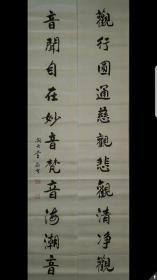 觀行圓通慈觀悲觀清净觀
音聞自在妙音梵音海潮音